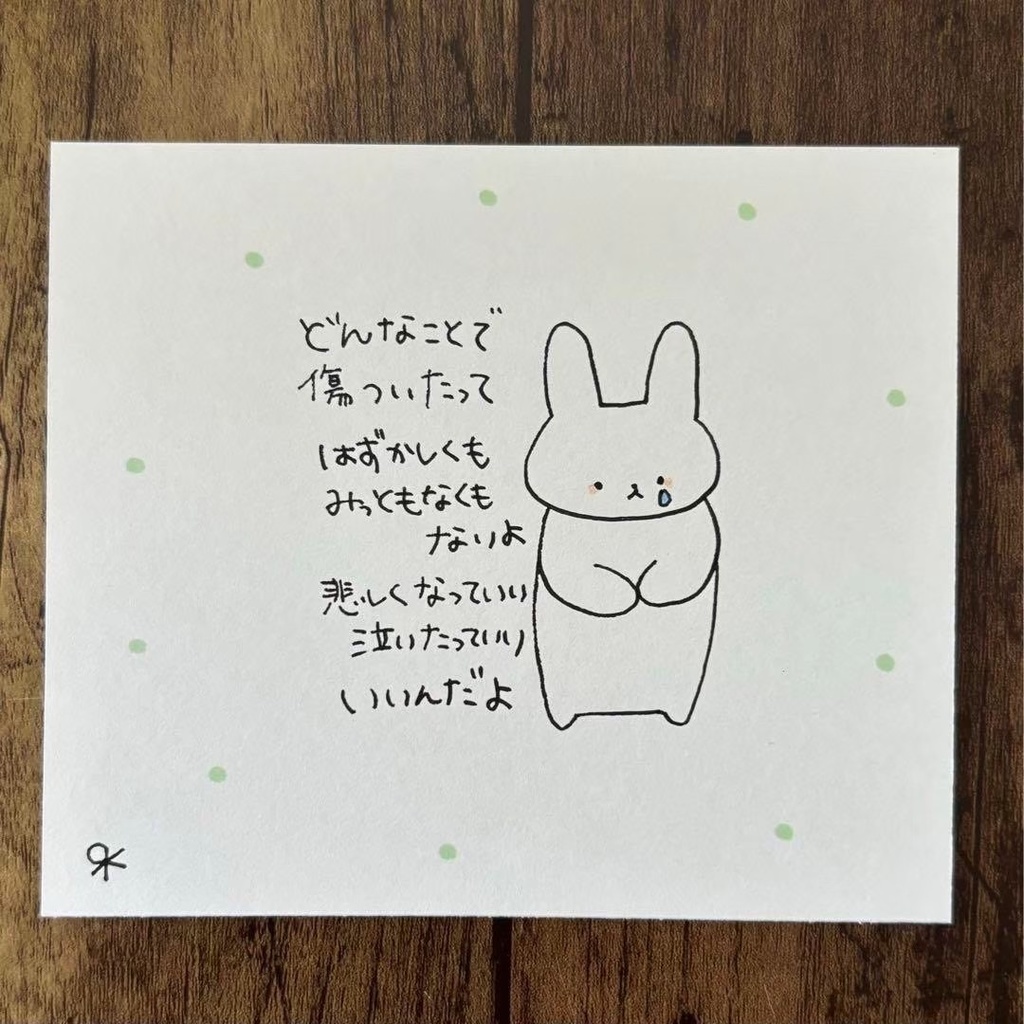 どんなことで
傷ついたって
はずかしくも
みっともなくも
ないよ
悲しくなっていい
泣いたっていい
いいんだよ